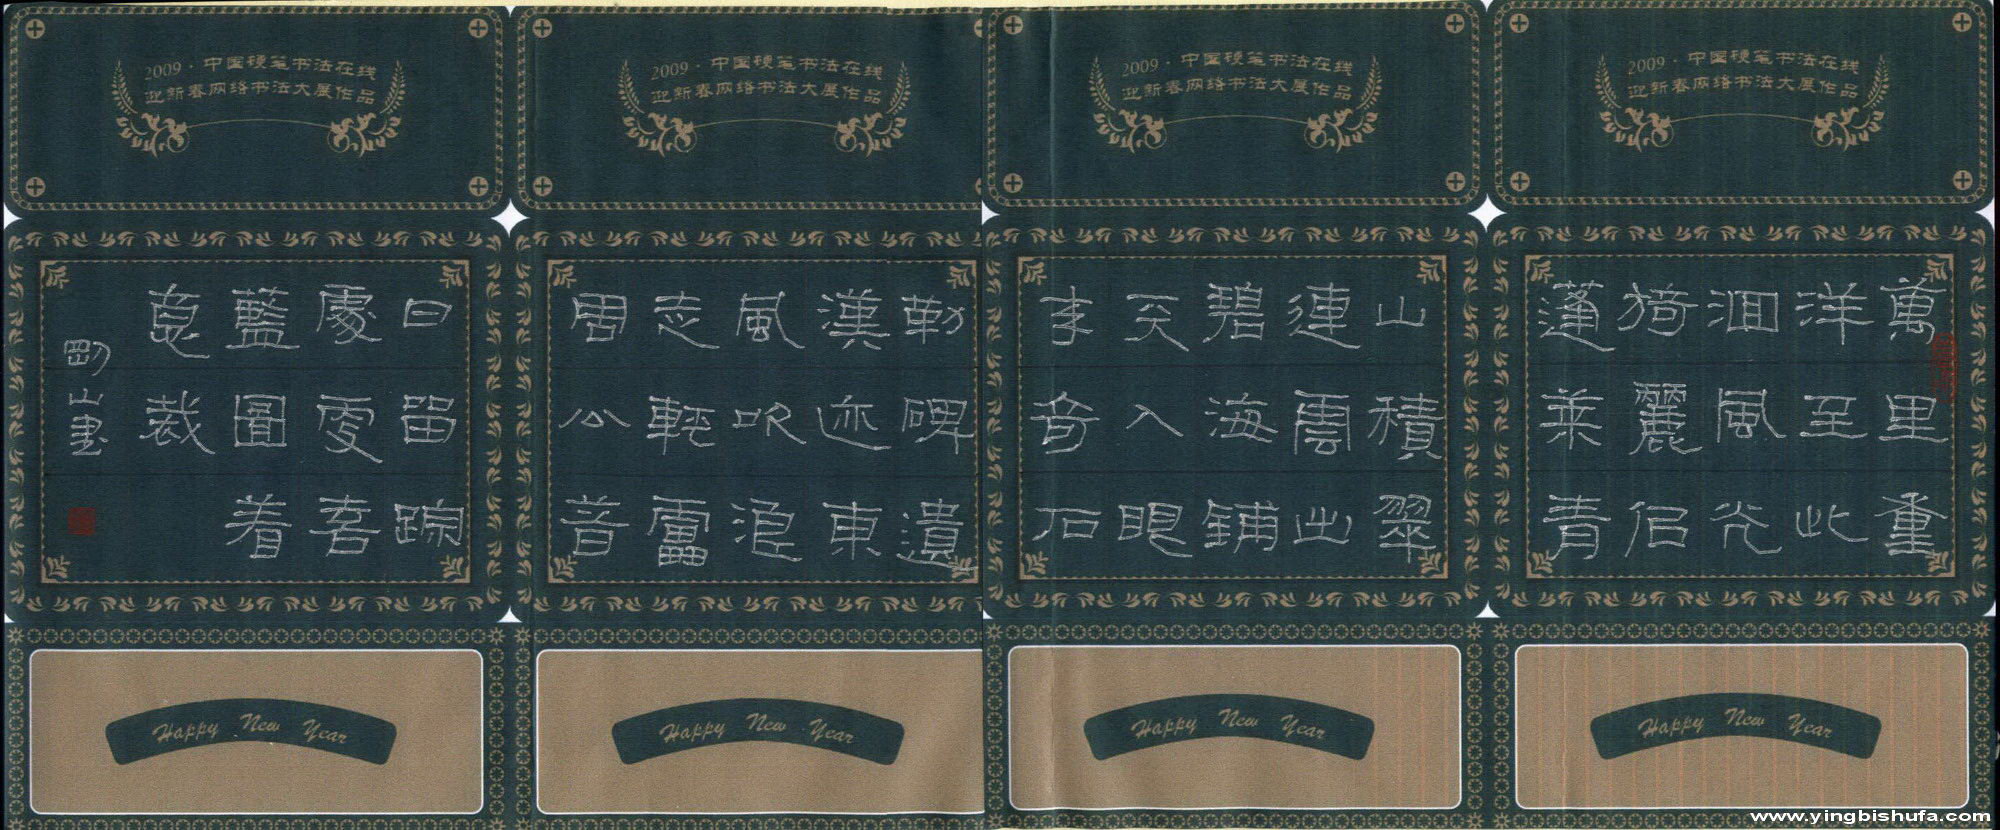 2009·中国硬笔书法在线
迎新春网络书法大展作品
2009·中国硬笔书法在线
迎新春网络书法大展作品
2009·中国硬笔书法在线
迎新春网络书法大展作品
2009·中国硬笔书法在线
迎新春网络书法大展作品
萬里重
洋至此
洄風光
猗麗佀
蓬莱青
山積翠
連雲出
碧海鋪
天入眼
来奇石
勒碑遺
漢迹東
風吹浪
走輕雷
周公昔
日留踪
處更喜
藍圖着
意裁
剛山書
Happy New Year
Happy New Year
Happy New Year
Happy New Year
www.yingbishufa.com